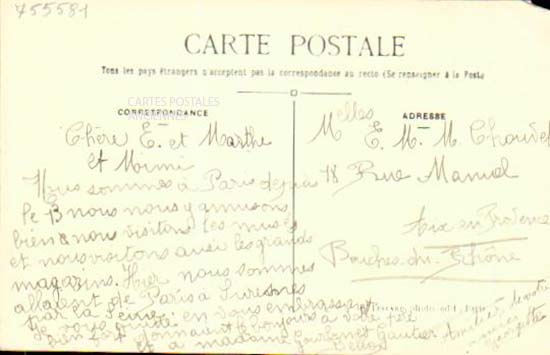 755581
CARTE POSTALE
Tous les pays étrangers n'acceptent pas la correspondance au recto (Se renseigner à la Poste
CARTES POSTALES
ANCIENNES
CORRESPONDANCE
Chère E. et Marthe
et Mimi
Nous sommes à Paris depuis
le 13 nous nous y amusons
bien & nous visitons les musés
et nous visitons aussi les grands
magazins. Hier nous sommes
allaient de Paris à Suresnes
par la Seine
je vous quitte en vous embrassant
bien fort et donnaient le bonjours à votre père
et à madame Gautier
ADRESSE
Melles
E. M. M. Chauvet
18 Rue Manuel
Aix en Provence
Bouches-du-Rhône